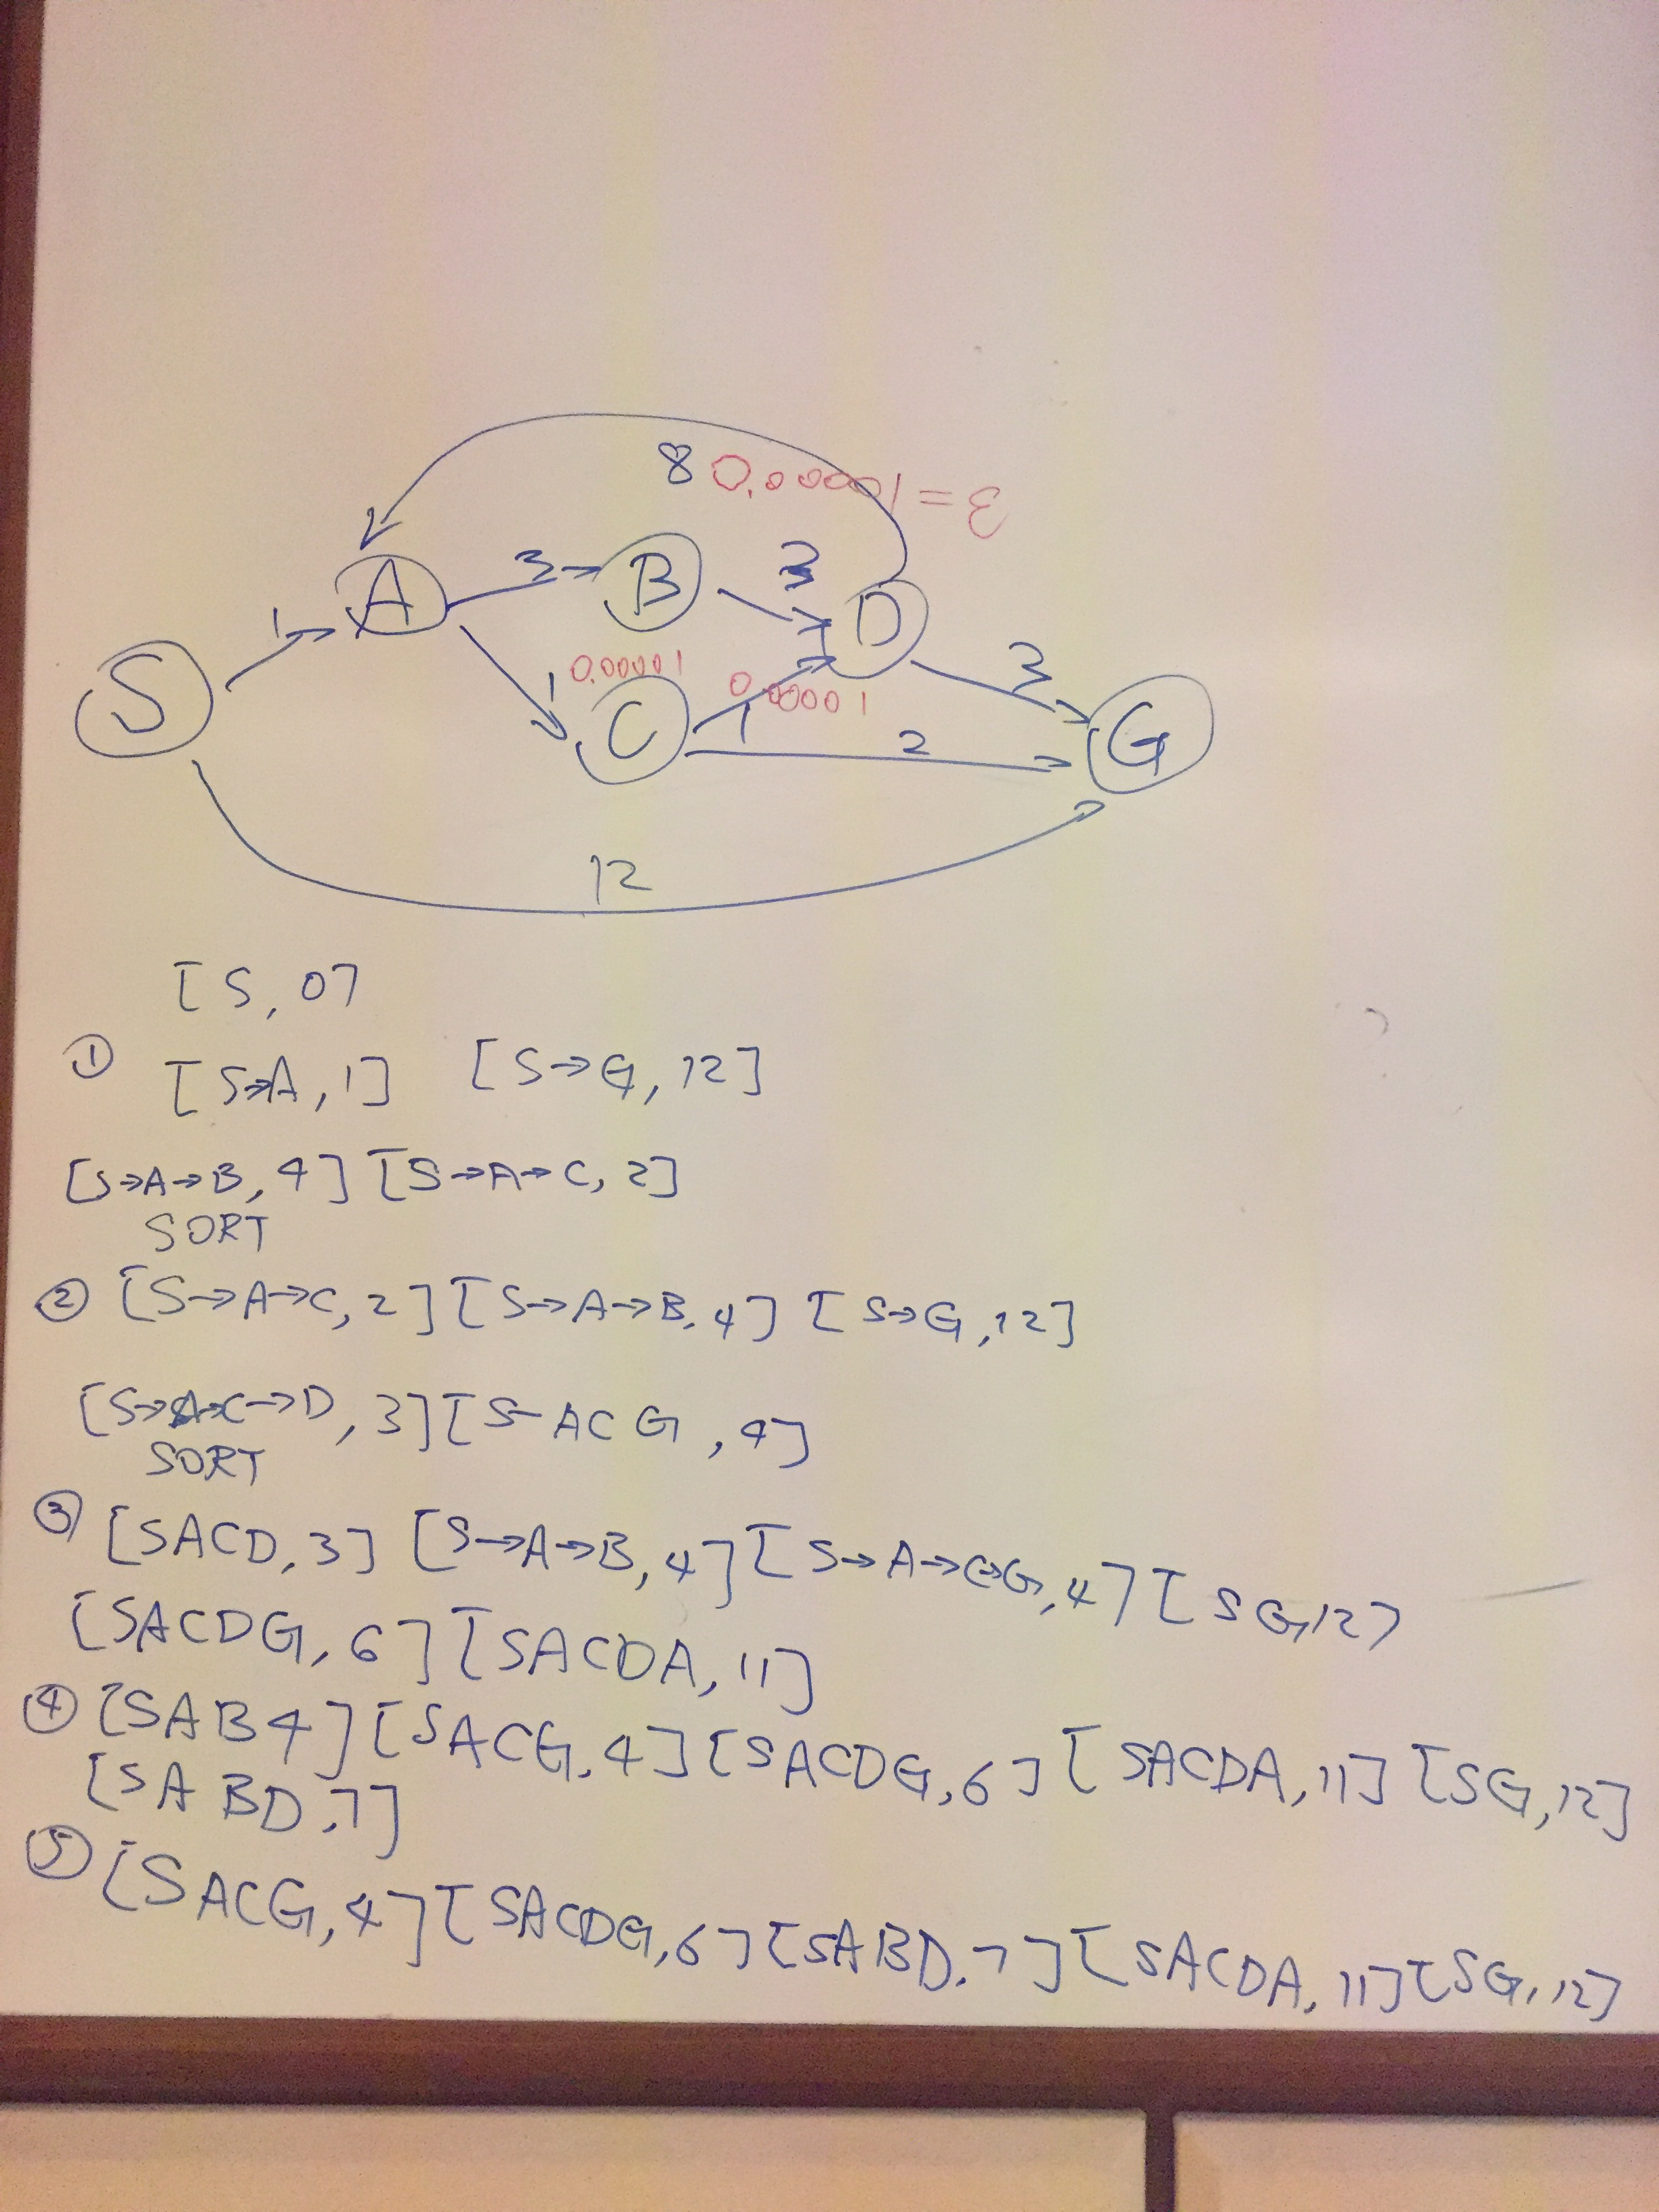 8 0.00001 = ε
A 3 B 3 D
1 3
S 1 0.00001 C 1 0.00001 2 G
12
[S, 0]
① [S→A, 1] [S→G, 12]
[S→A→B, 4] [S→A→C, 2]
SORT
② [S→A→C, 2] [S→A→B, 4] [S→G, 12]
[S→A→C→D, 3] [S-ACG, 4]
SORT
③ [SACD, 3] [S→A→B, 4] [S→A→C→G, 4] [SG, 12]
[SACDG, 6] [SACDA, 11]
④ [SAB4] [SACG, 4] [SACDG, 6] [SACDA, 11] [SG, 12]
[SABD, 7]
⑤ [SACG, 4] [SACDG, 6] [SABD, 7] [SACDA, 11] [SG, 12]